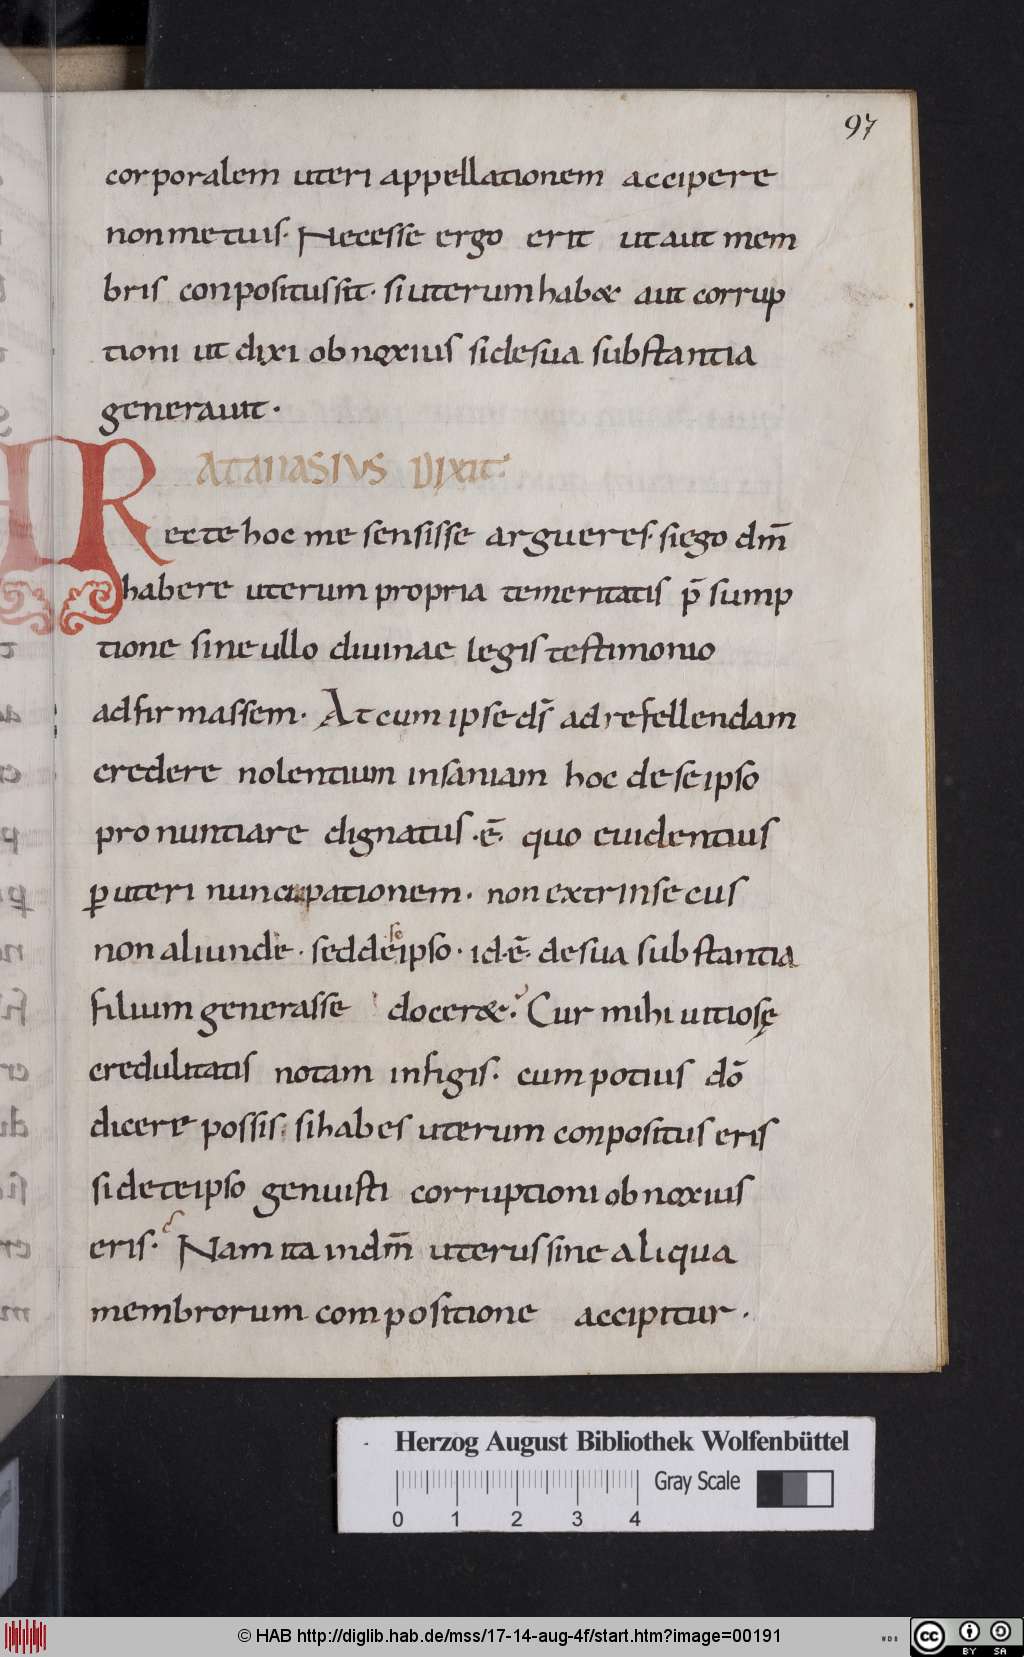 97
corporalem uteri appellationem accipere
non metuis. Necesse ergo erit ut aut mem
bris conpositus sit. si uterum hab& aut corrup
tioni ut dixi obnoxius si de sua substantia
generauit.
ATANASIVS DIXIT.
Recte hoc me sensisse argueres. si ego dm̄
habere uterum propria temeritatis p̄sump
tione sine ullo diuinae legis testimonio
adfirmassem. At cum ipse ds̄ ad refellendam
credere nolentium insaniam hoc de se ipso
pronuntiare dignatus .ē. quo euidentius
ꝑ uteri nuncupationem. non extrinsecus
non aliunde. sed de se ipso. id .ē. de sua substantia
filium generasse docer&. Cur mihi uitiosę
credulitatis notam infigis. cum potius dō
dicere possis. si habes uterum conpositus eris
si de te ipso genuisti corruptioni obnoxius
eris. Nam ita in dm̄ uterus sine aliqua
membrorum compositione accipitur.
Herzog August Bibliothek Wolfenbüttel
Gray Scale
0 1 2 3 4
© HAB http://diglib.hab.de/mss/17-14-aug-4f/start.htm?image=00191
WDB
cc BY SA